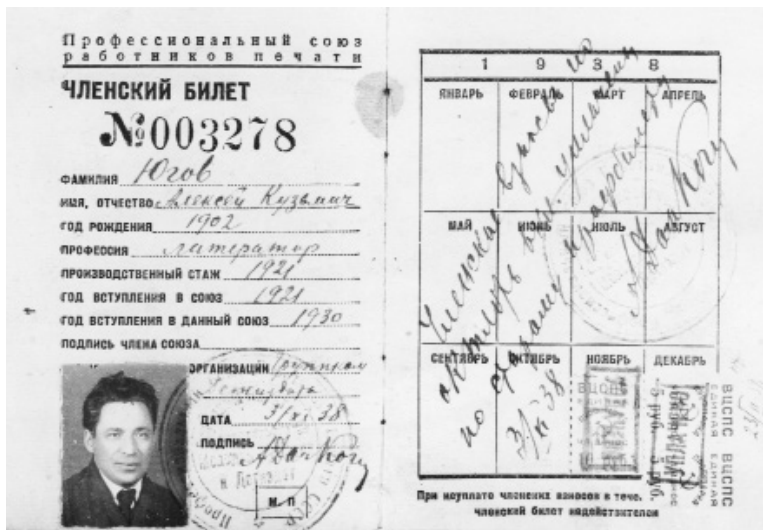 Профессиональный союз
работников печати
ЧЛЕНСКИЙ БИЛЕТ
№003278
ФАМИЛИЯ Югов
ИМЯ, ОТЧЕСТВО Алексей Кузьмич
ГОД РОЖДЕНИЯ 1902
ПРОФЕССИЯ литератор
ПРОИЗВОДСТВЕННЫЙ СТАЖ 1921
ГОД ВСТУПЛЕНИЯ В СОЮЗ 1921
ГОД ВСТУПЛЕНИЯ В ДАННЫЙ СОЮЗ 1930
ПОДПИСЬ ЧЛЕНА СОЮЗА
ОРГАНИЗАЦИИ Группком
ДАТА 3/XI 38
ПОДПИСЬ
М. П
1 9 3 8
ЯНВАРЬ ФЕВРАЛЬ МАРТ АПРЕЛЬ
МАЙ ИЮНЬ ИЮЛЬ АВГУСТ
СЕНТЯБРЬ ОКТЯБРЬ НОЯБРЬ ДЕКАБРЬ
Членские взносы по
октябрь вкл. уплачены
по старому профбилету
3/XI 38
ВЦСПС ВЦСПС
ЕДИНАЯ ЕДИНАЯ
5 руб. 5 руб.
При неуплате членских взносов в тече.
членский билет недействителен